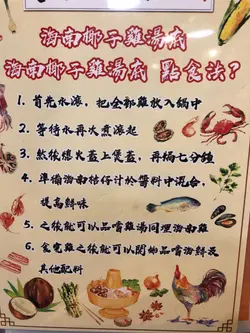 海南椰子雞湯底
海南椰子雞湯底 點食法?
1. 首先水滾, 把全部雞放入鍋中
2. 等待水再次煮滾起
3. 然後慢火蓋上煲蓋, 再焗七分鐘
4. 準備海南桔仔汁於醬料中混合,
提高鮮味
5. 之後就可以品嚐雞湯同埋海南雞
6. 食完雞之後就可以開始品嚐海鮮及
其他配料